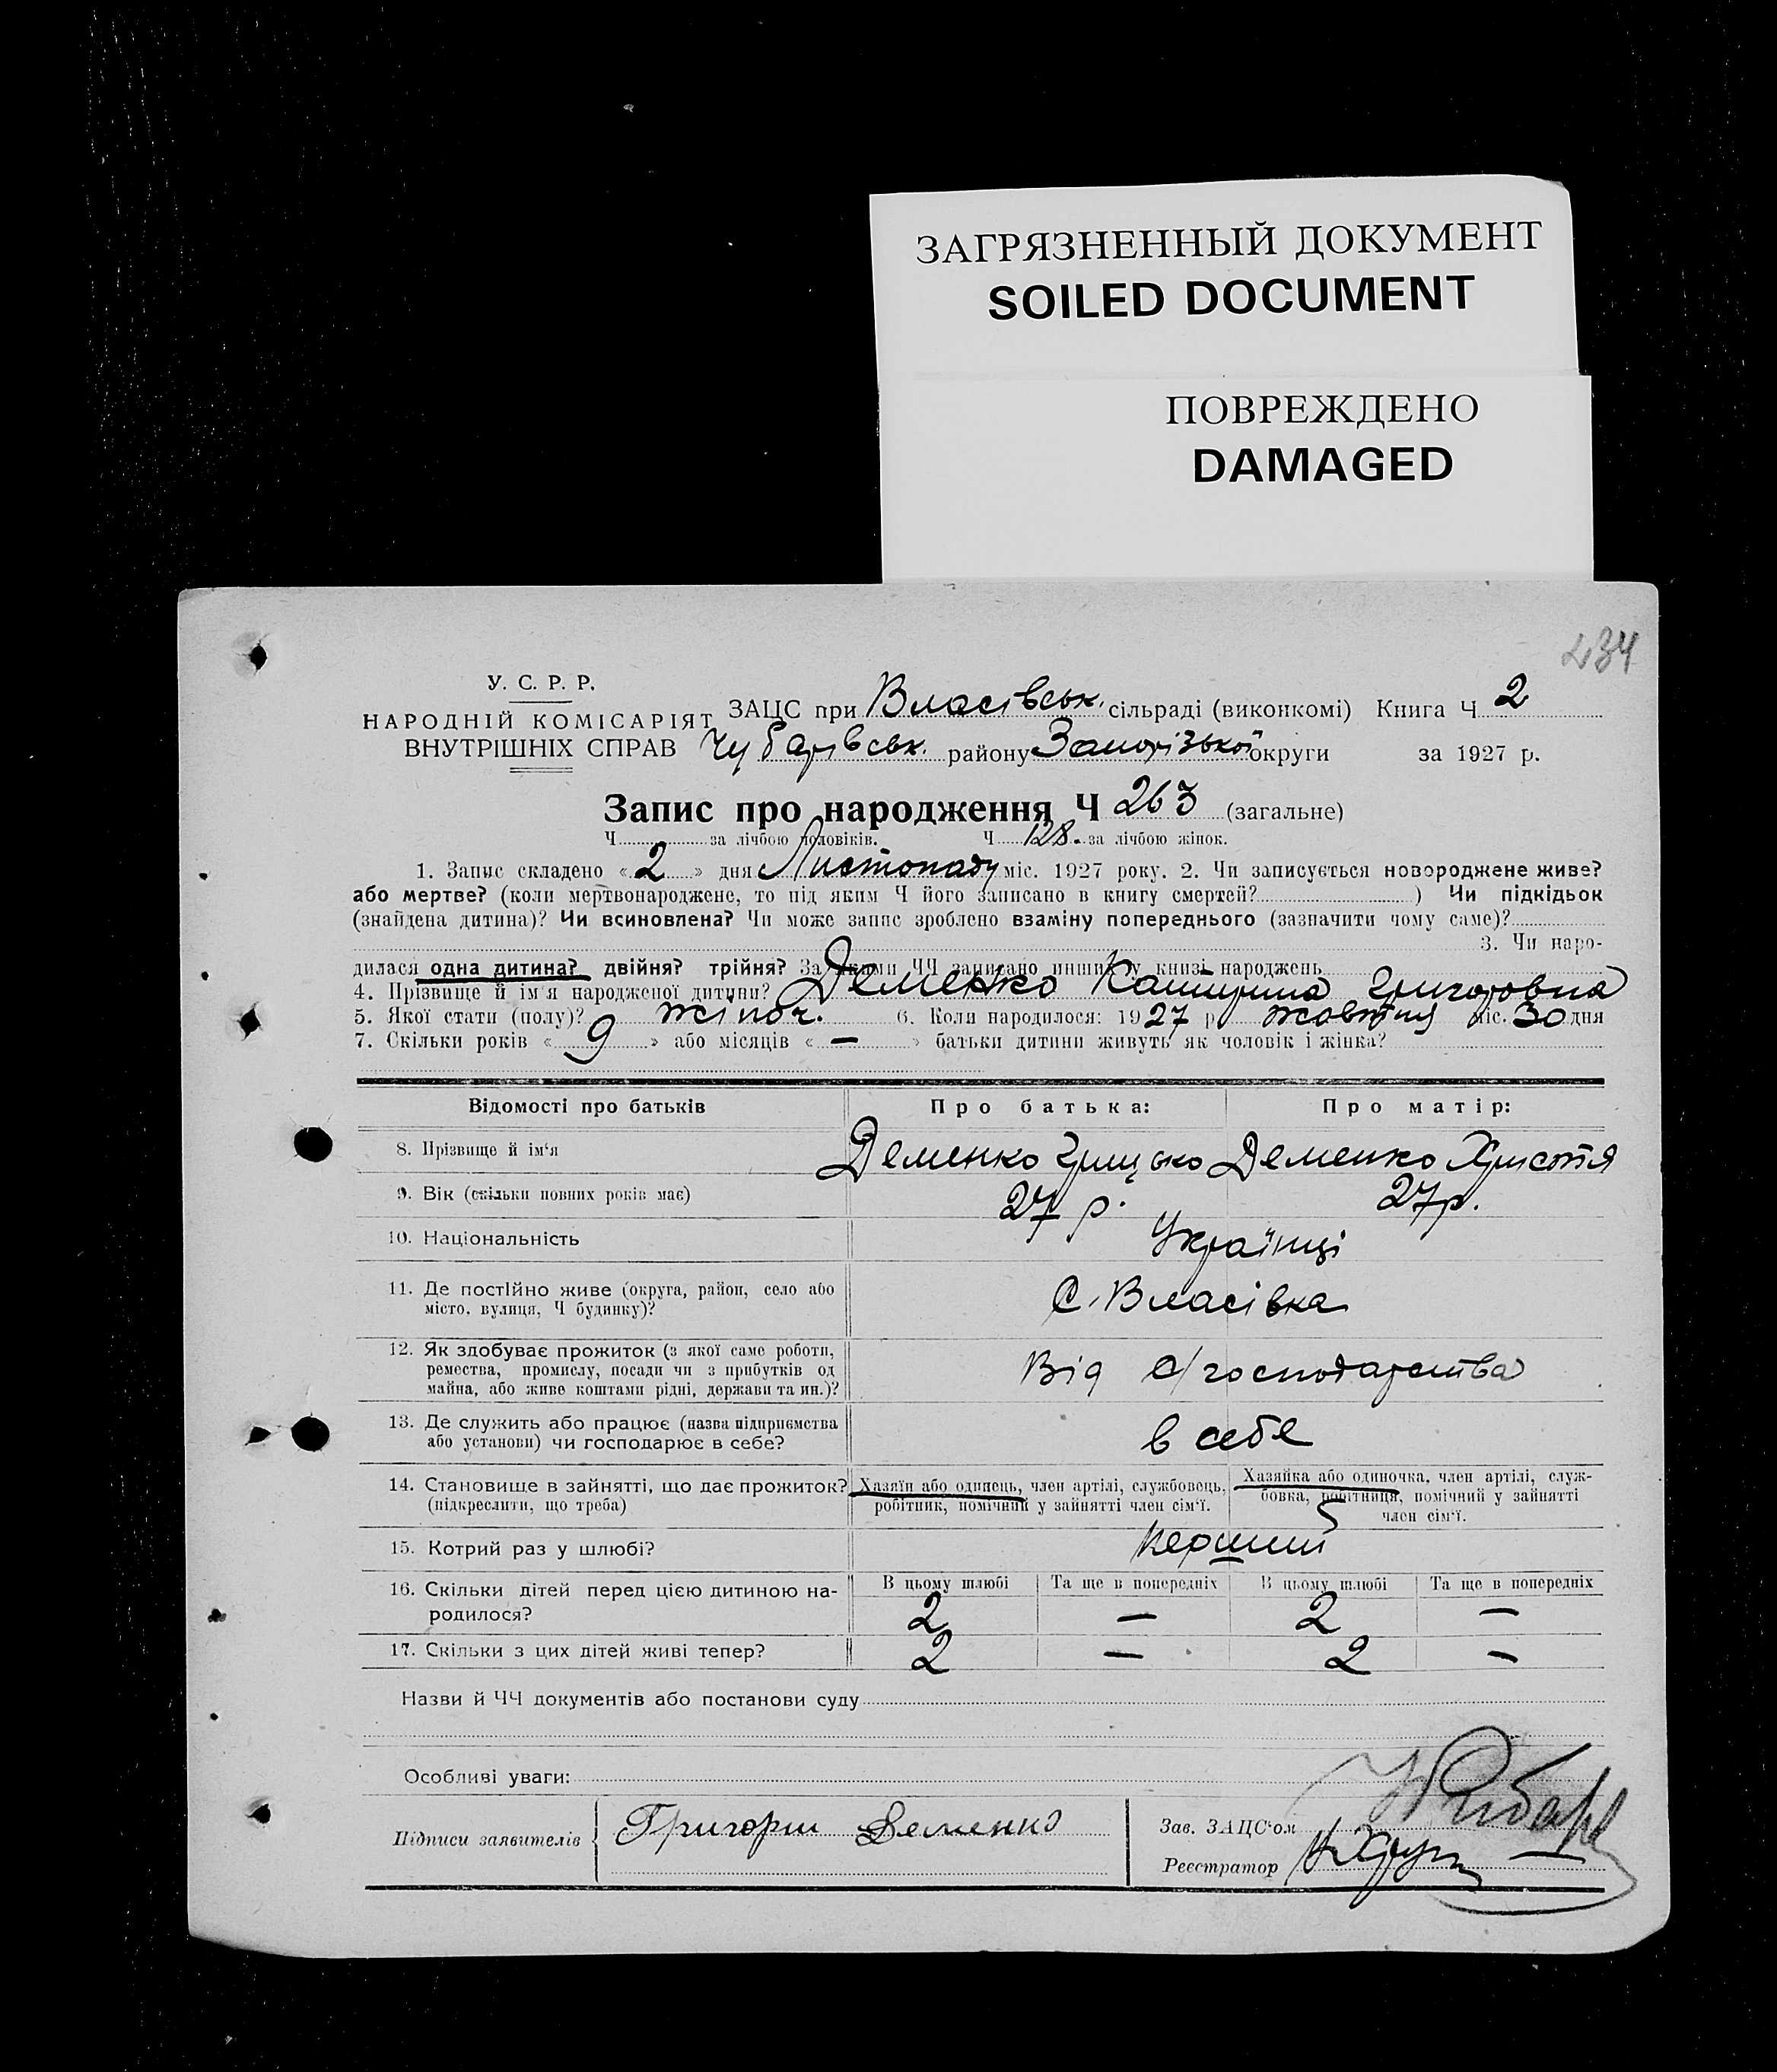 ЗАГРЯЗНЕННЫЙ ДОКУМЕНТ
SOILED DOCUMENT
ПОВРЕЖДЕНО
DAMAGED
234
У. С. Р. Р.
НАРОДНІЙ КОМІСАРІЯТ
ВНУТРІШНІХ СПРАВ
ЗАЦС при Власівськ. сільраді (виконкомі) Книга Ч 2
Чубарівськ. району Запорізької округи за 1927 р.
Запис про народження Ч 263 (загальне)
Ч за лічбою чоловіків. Ч 128. за лічбою жінок.
1. Запис складено «2» дня Листопаду міс. 1927 року. 2. Чи записується новороджене живе?
або мертве? (коли мертвонароджене, то під яким Ч його записано в книгу смертей? ) Чи підкідьок
(знайдена дитина)? Чи всиновлена? Чи може запис зроблено взаміну попереднього (зазначити чому саме)?
3. Чи наро-
дилася одна дитина? двійня? трійня? За якими ЧЧ записано инших у книзі народжень
4. Прізвище й ім'я народженої дитини? Деменко Катирина Григоровна
5. Якої стати (полу)? жіноч. 6. Коли народилося: 1927 р. жовтня міс. 30 дня
7. Скільки років «9» або місяців «—» батьки дитини живуть як чоловік і жінка?
Відомості про батьків Про батька: Про матір:
8. Прізвище й ім'я Деменко Грицько Деменко Христя
9. Вік (скільки повних років має) 27 р. 27 р.
10. Національність Українці
11. Де постійно живе (округа, район, село або
місто, вулиця, Ч будинку)? С. Власівка
12. Як здобуває прожиток (з якої саме роботи,
ремества, промислу, посади чи з прибутків од
майна, або живе коштами рідні, держави та ин.)? Від с/господарства
13. Де служить або працює (назва підприємства
або установи) чи господарює в себе? в себе
14. Становище в зайнятті, що дає прожиток?
(підкреслити, що треба)
Хазяїн або одинець, член артілі, службовець,
робітник, помічний у зайнятті член сім'ї.
Хазяйка або одиночка, член артілі, служ-
бовка, робітниця, помічний у зайнятті
член сім'ї.
15. Котрий раз у шлюбі? перший
16. Скільки дітей перед цією дитиною на-
родилося?
В цьому шлюбі Та ще в попередніх В цьому шлюбі Та ще в попередніх
2 — 2 —
17. Скільки з цих дітей живі тепер? 2 — 2 —
Назви й ЧЧ документів або постанови суду
Особливі уваги:
Підписи заявителів Григорій Деменко
Зав. ЗАЦС'ом
Реєстратор